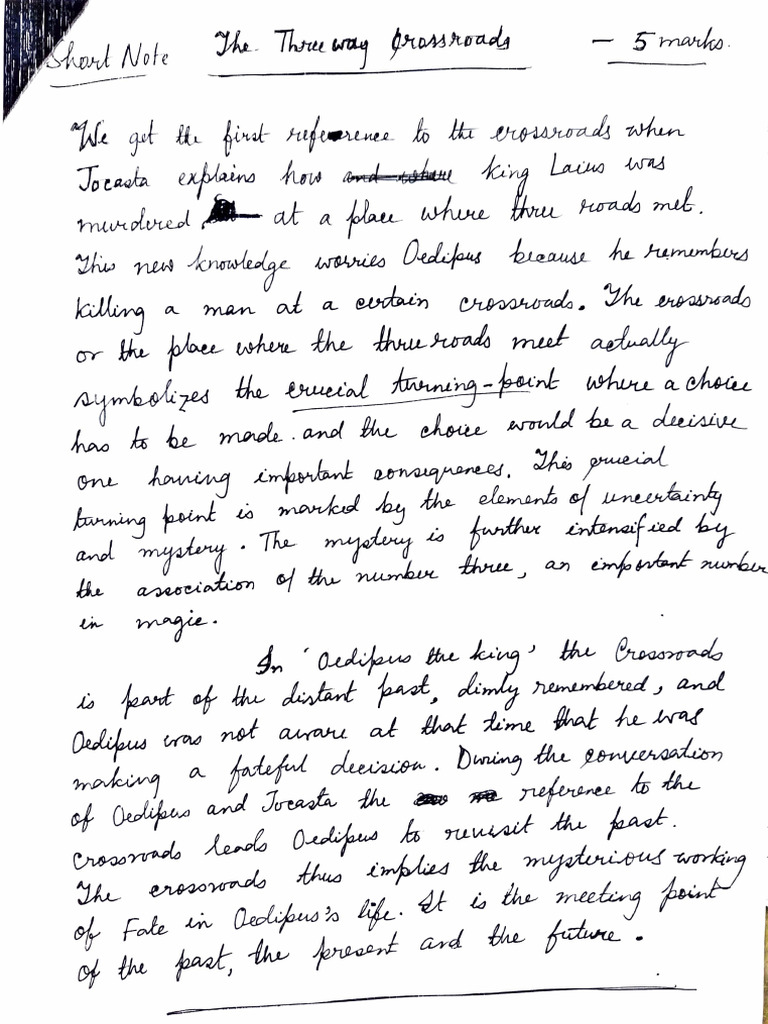 Short Note The Three way Crossroads - 5 marks.
We get the first reference to the crossroads when
Jocasta explains how king Laius was
murdered at a place where three roads met.
This new knowledge worries Oedipus because he remembers
killing a man at a certain crossroads. The crossroads
or the place where the three roads meet actually
symbolizes the crucial turning-point where a choice
has to be made. and the choice would be a decisive
one having important consequences. This crucial
turning point is marked by the elements of uncertainty
and mystery. The mystery is further intensified by
the association of the number three, an important number
in magic.
In 'Oedipus the king' the Crossroads
is part of the distant past, dimly remembered, and
Oedipus was not aware at that time that he was
making a fateful decision. During the conversation
of Oedipus and Jocasta the reference to the
crossroads leads Oedipus to revisit the past.
The crossroads thus implies the mysterious working
of Fate in Oedipus's life. It is the meeting point
of the past, the present and the future.